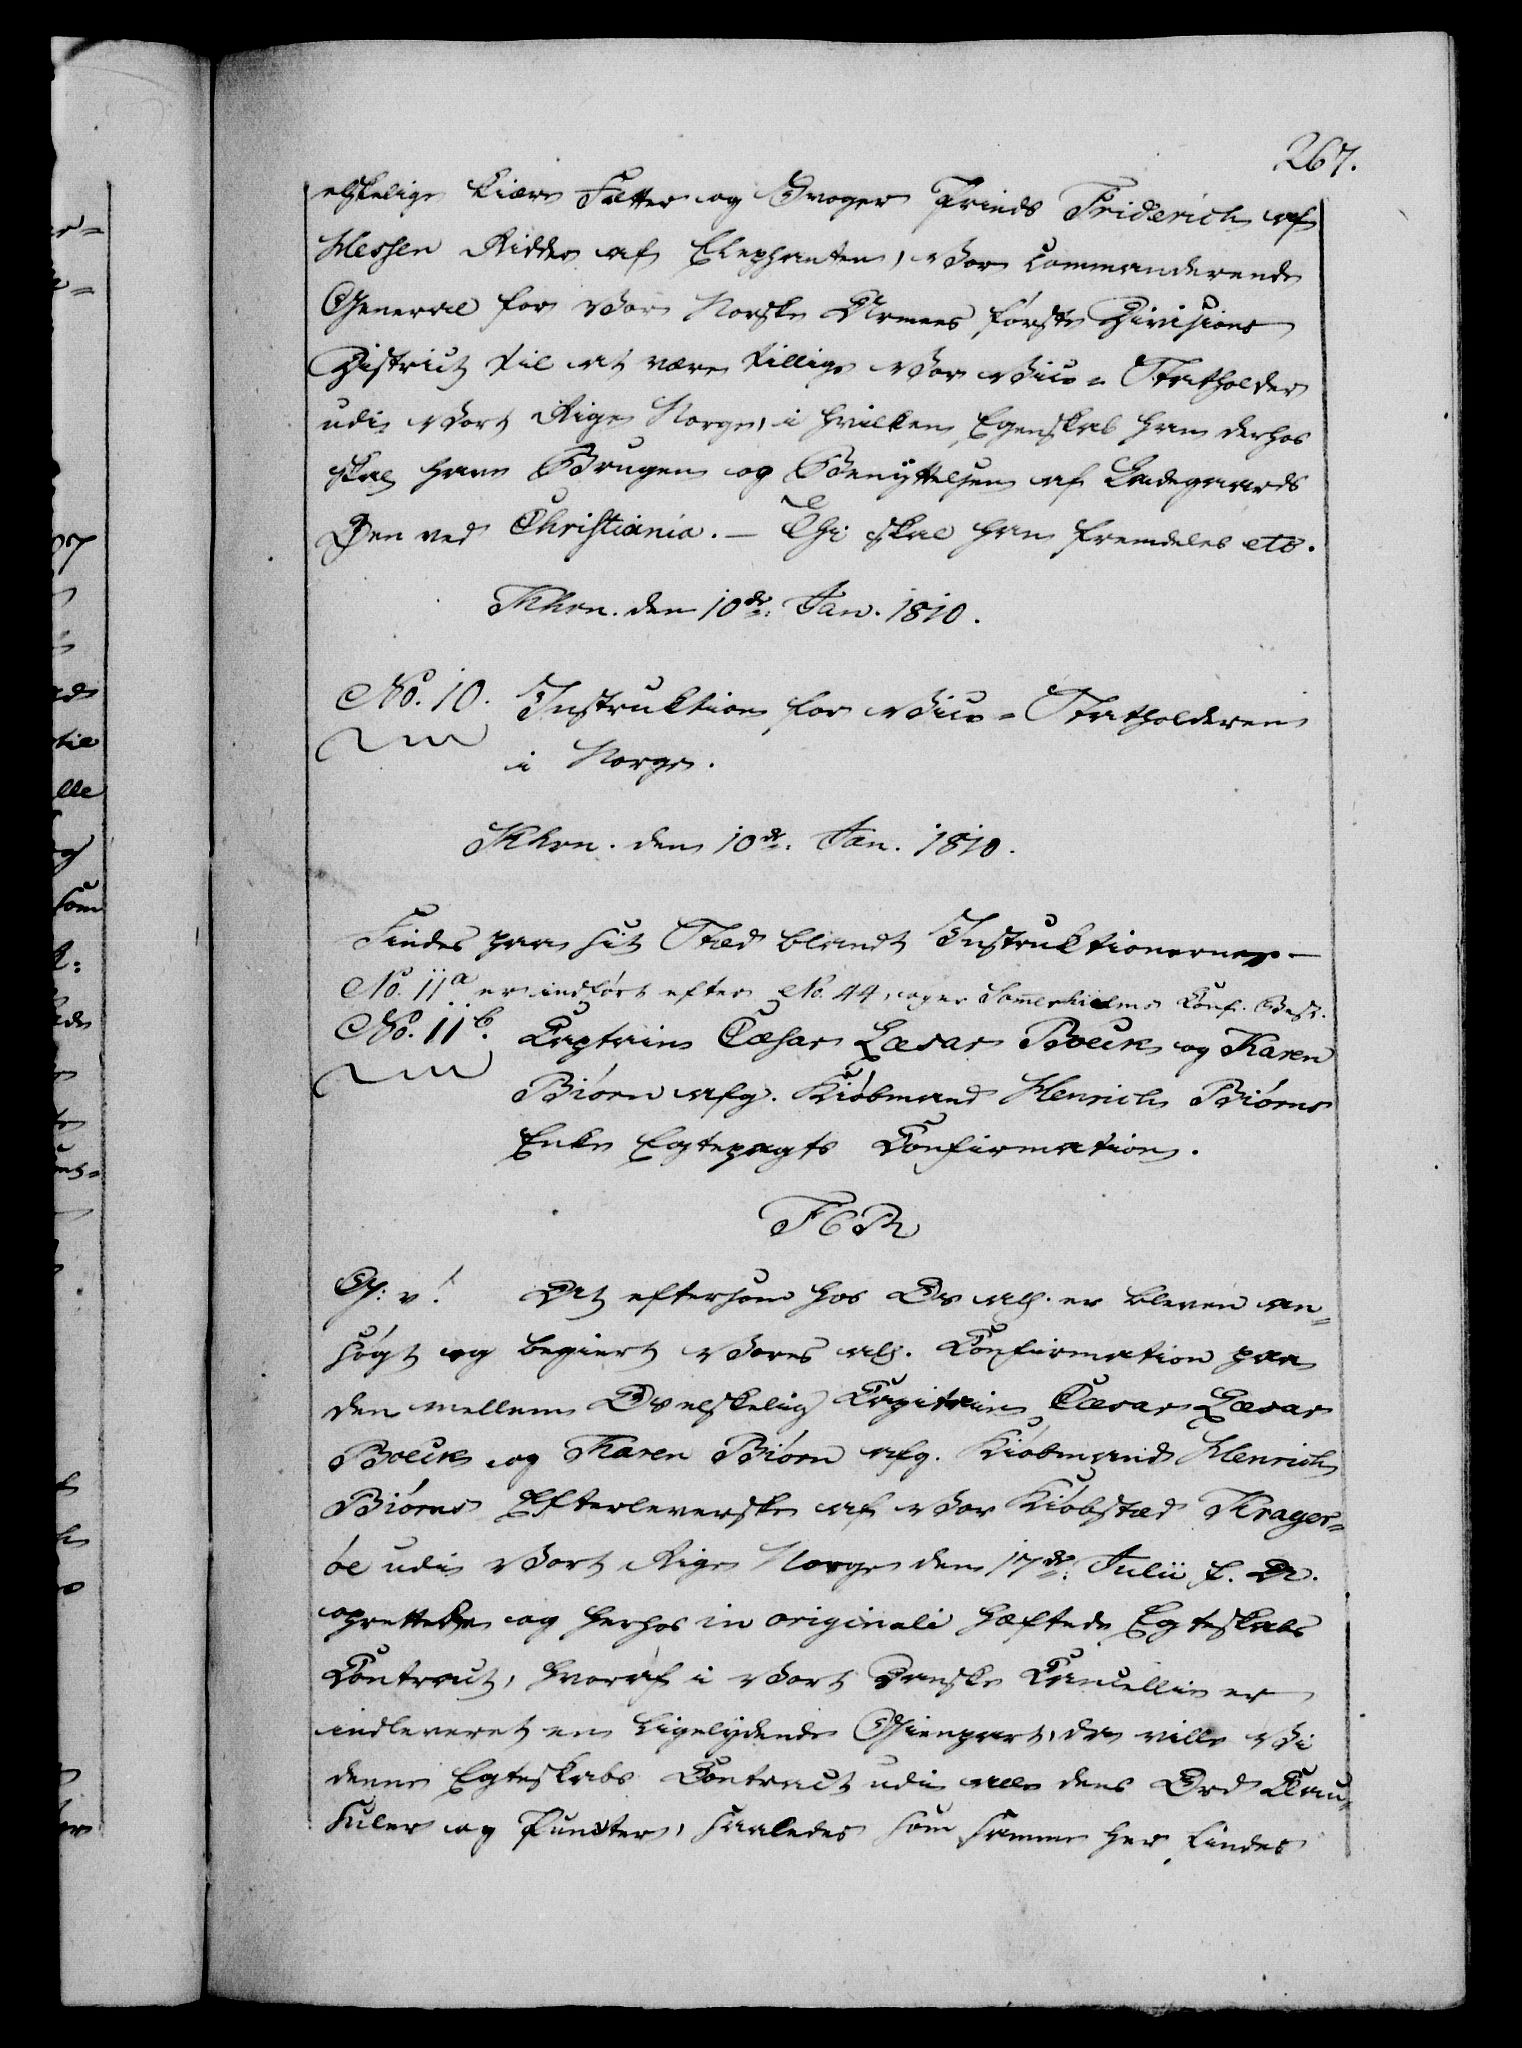 267.
elskelige kiære Fetter og Svoger Prinds Friderich af
Hessen Ridder af Elephanten, vor commanderende
General for vor Norske Armees første Divisions
District til at være tillige vor Vice-Statholder
udi vort Rige Norge, i hvilken Egenskab han derhos
skal have Brugen og Benyttelsen af Ladegaards
Øen ved Christiania. – Thi skal han fremdeles etc.
Khvn. den 10de Jan. 1810.
No. 10. Instruktion for Vice-Statholderen
i Norge.
Khvn. den 10de Jan. 1810.
Findes paa sit Sted blandt Instruktionerne –
No. 11a er indført efter No. 44, og er Sommerhielms Conf. Best.
No. 11b. Captain Cæsar Læsar Boeck og Karen
Biørn afg. Kiøbmand Henrich Biørns
Enke Egtepagts Confirmation.
F6R
G: v! At eftersom hos Os all. er bleven an=
søgt og begiert vores all. Confirmation paa
den mellem Os elskelig Capitain Cæsar Læsar
Boeck og Karen Biørn afg. Kiøbmand Henrich
Biørns Efterleverske af vor Kiøbstæd Krager=
öe udi vort Rige Norge den 17de Julii f. A.
oprettede og herhos in originali hæftede Egteskabs
Contract, hvoraf i vort Danske Cancellie er
indleveret en ligelydende Gienpart, da ville Vi
denne Egteskabs Contract udi alle dens Ord Clau=
suler og Puncter, saaledes som samme her findes